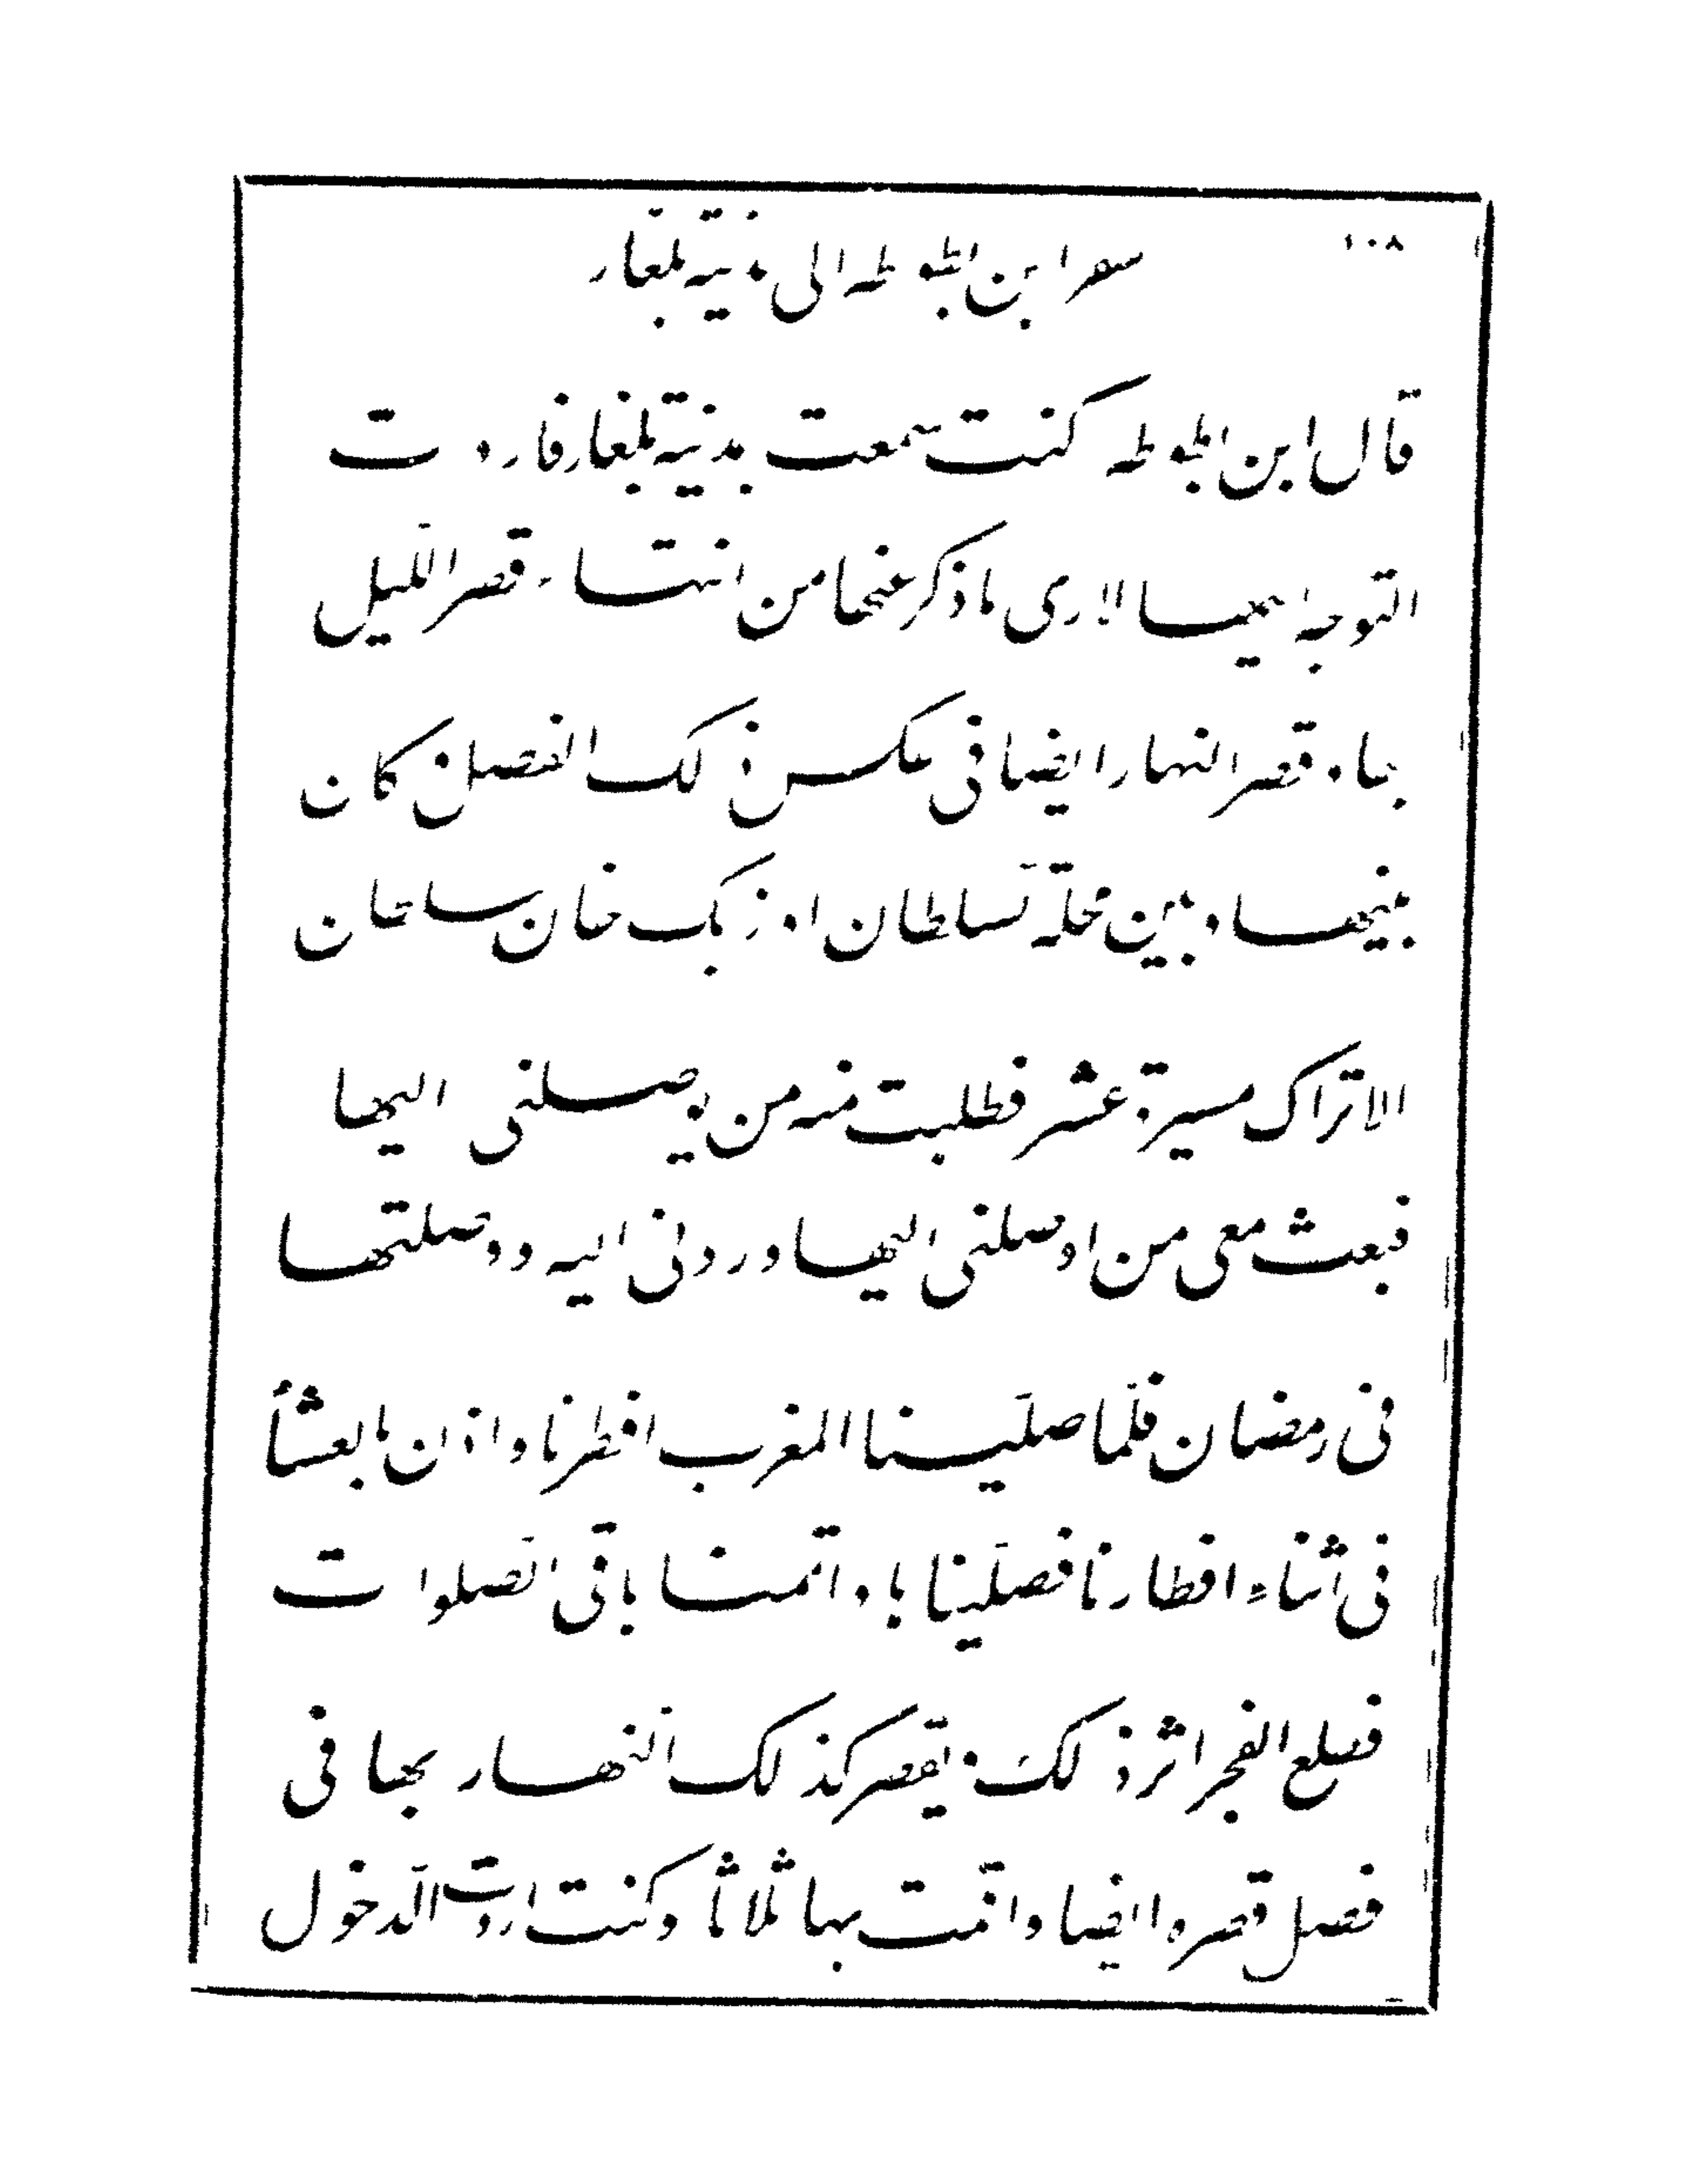 ١٠٨
سفر ابن بطوطه الى مدينة بلغار
قال ابن بطوطه كنت سمعت بمدينة بلغار فاردت
التوجه اليها لارى ما ذكر عنها من انتهاء قصر الليل
بها وقصر النهار ايضا فى عكس ذلك الفصل وكان
بينها وبين محلة السلطان اوزبك خان سلطان
الاتراك مسيرة عشر فطلبت منه من يوصلنى اليها
فبعث معى من اوصلنى اليها وردنى اليه ووصلتها
فى رمضان فلمّا صلّينا المغرب افطرنا واذن بالعشأ
فى اثناء افطارنا فصلّيناها واتممنا باقى الصلوات
فطلع الفجر اثر ذلك ويقصر كذلك النهار بها فى
فصل قصره ايضا واقمت بها ثلاثا وكنت اردت الدخول